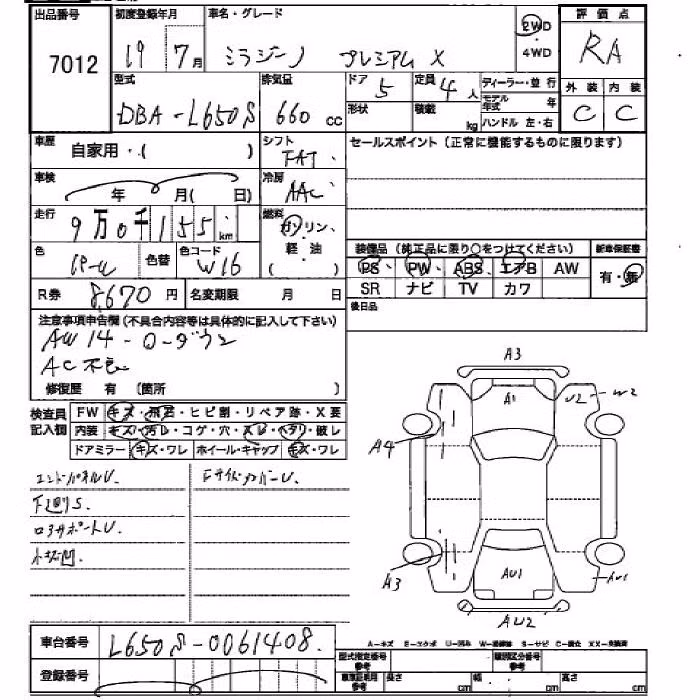 出品番号 初度登録年月 車名・グレード 評価点
7012 19 7月 ミラジーノ プレミアム X 2WD 4WD RA
型式 排気量 ドア 定員 ディーラー・並行 外装 内装
DBA-L650S 660 cc 5 4人 モデル年式 年 C C
形状 積載 kg ハンドル 左・右
車歴 自家用・( ) シフト FAT セールスポイント (正常に機能するものに限ります)
車検 年 月( 日) 冷房 AAC
走行 9万0千155 km 燃料 ガソリン、軽・油 ( )
色 パール 色替 色コード W16 装備品 (純正品に限り○をつけてください) 新車保証書
PS、 PW、 ABS、 エアB AW 有・無
R券 8670円 名変期限 月 日 SR ナビ TV カワ
後日品
注意事項申告欄 (不具合内容等は具体的に記入して下さい)
AW 14-0-ダウン
AC不良
修復歴 有 (箇所 )
検査員記入欄 FW キズ・飛石・ヒビ割・リペア跡・X要
内装 キズ・汚レ・コゲ・穴・スレ・ヘタリ・破レ
ドアミラー キズ・ワレ ホイール・キャップ キズ・ワレ
エンドパネルU. FサイドメンバーU.
下廻りS.
コアサポートU
小板凹
A3
A1
U2
W2
A4
A3
AU1
AU1
AU2
車台番号 L650S-0061408.
登録番号
A-キズ E-エクボ U-凹み W-補修跡 S-サビ C-腐食 XX-交換済
型式指定番号 参考 類別区分番号 参考
車庫証明用 参考 長さ cm 幅 cm 高さ cm